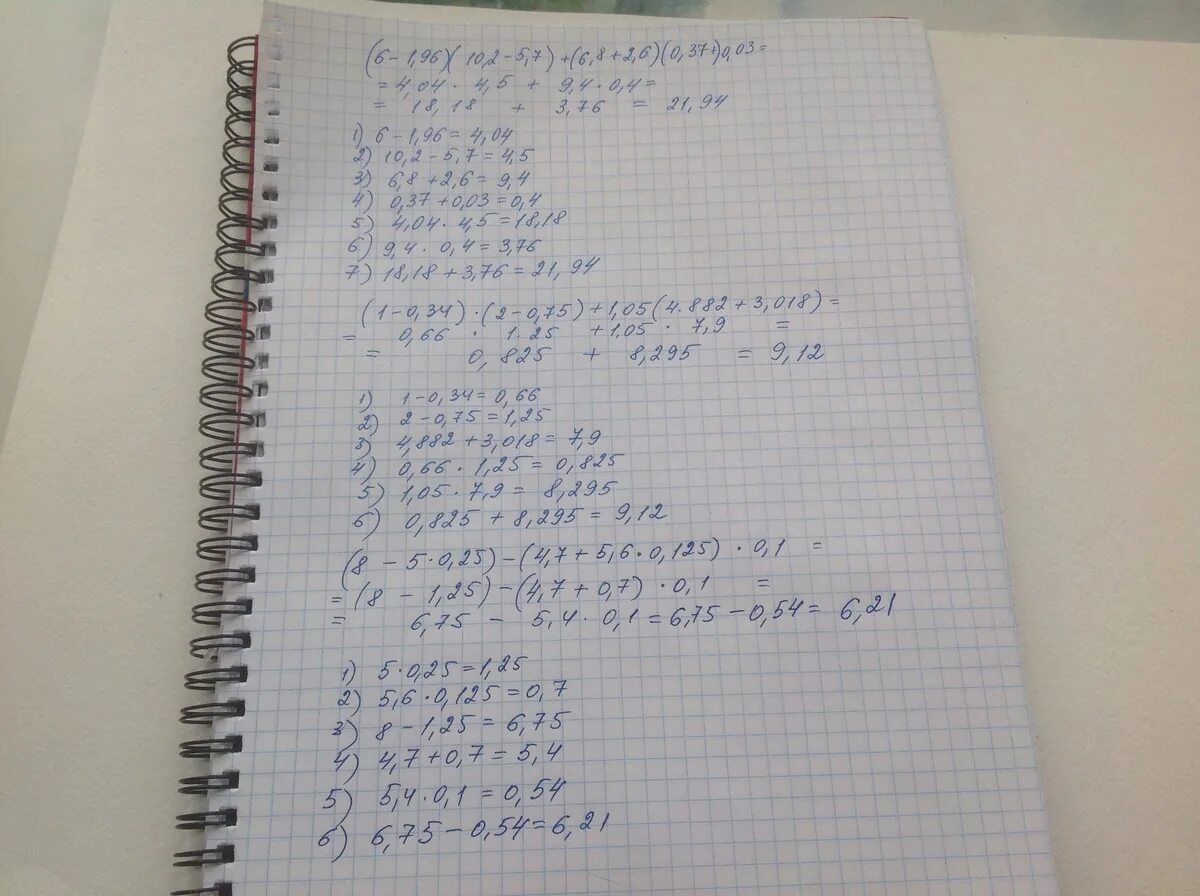 (6-1,96)(10,2-5,7)+(6,8+2,6)(0,37+)0,03=
=4,04 · 4,5 + 9,4 · 0,4=
= 18,18 + 3,76 = 21,94
1) 6-1,96=4,04
2) 10,2-5,7=4,5
3) 6,8+2,6=9,4
4) 0,37+0,03=0,4
5) 4,04 · 4,5=18,18
6) 9,4 · 0,4=3,76
7) 18,18+3,76=21,94
(1-0,34)·(2-0,75)+1,05(4.882+3,018)=
= 0,66 · 1.25 +1.05 · 7,9 =
= 0,825 + 8,295 = 9,12
1) 1-0,34=0,66
2) 2-0,75=1,25
3) 4,882+3,018=7,9
4) 0,66 · 1,25=0,825
5) 1,05 · 7,9= 8,295
6) 0,825 + 8,295 = 9,12
(8-5·0,25)-(4,7+5,6·0,125)·0,1 =
=(8-1,25)-(4,7+0,7)·0,1 =
= 6,75 - 5,4·0,1=6,75-0,54= 6,21
1) 5·0,25=1,25
2) 5,6·0,125=0,7
3) 8-1,25=6,75
4) 4,7+0,7=5,4
5) 5,4·0,1=0,54
6) 6,75-0,54=6,21